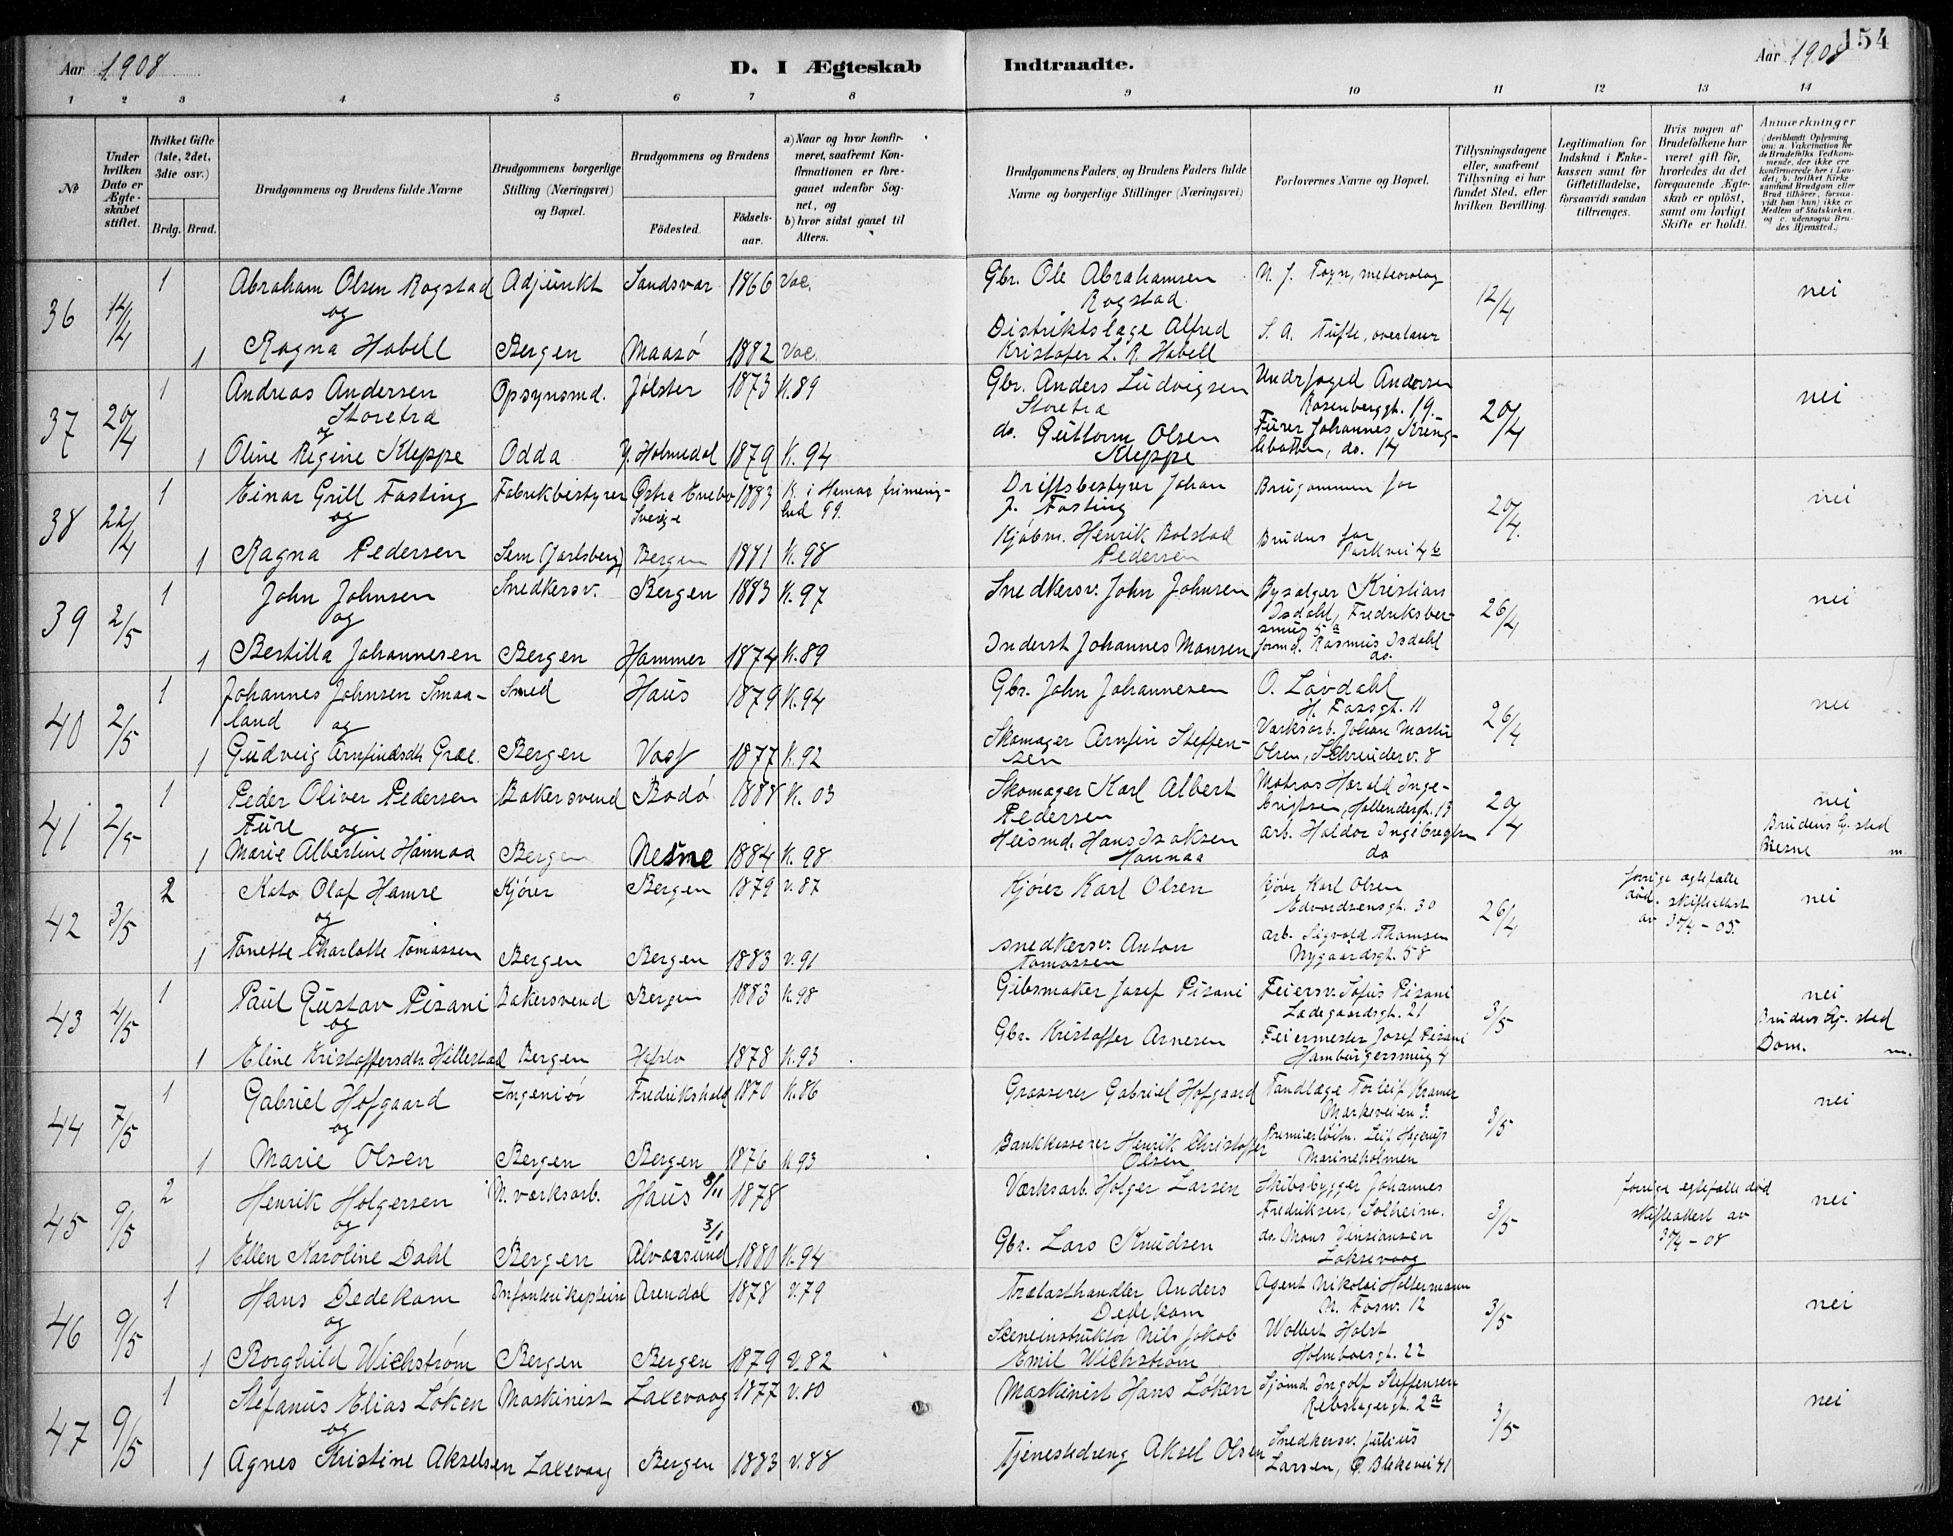 154
Aar 1908
D. I Ægteskab
Indtraadte.
Aar 1908
1 2 3 4 5 6 7 8 9 10 11 12 13 14
№
Under hvilken Dato er Ægteskabet stiftet.
Hvilket Gifte (1ste, 2det, 3die osv.)
Brdg. Brud.
Brudgommens og Brudens fulde Navne
Brudgommens borgerlige Stilling (Næringsvei) og Bopæl.
Brudgommens og Brudens
Födested.
Födselsaar.
a) Naar og hvor konfirmeret, saafremt Konfirmationen er foregaaet udenfor Sognet, og
b) hvor sidst gaaet til Alters.
Brudgommens Faders og Brudens Faders fulde Navne og borgerlige Stillinger (Næringsvei)
Forlovernes Navne og Bopæl.
Tillysningsdagene eller, saafremt Tillysning ei har fundet Sted, efter hvilken Bevilling.
Legitimation for Indskud i Enkekassen samt for Giftetilladelse, forsaavidt saadan tiltrænges.
Hvis nogen af Brudefolkene har været gift för, hvorledes da det foregaaende Ægteskab er oplöst, samt om lovligt Skifte er holdt.
Anmærkninger (deriblandt Oplysning om: a. Vakcination for de Brudefolks Vedkommende, der ikke ere konfirmerede her i Landet; b. hvilket Kirkesamfund Brudgom eller Brud tilhörer, forsaavidt han (hun) ikke er Medlem af Statskirken, og c. udensogns Brudes Hjemsted.)
36 14/4 1 Abraham Olsen Rogstad Adjunkt Sandsvær 1866 Vac. Gbr. Ole Abrahamsen Rogstad N. J. Føyn, meteorolog 12/4 nei
og
1 Ragna Habell Bergen Maasö 1882 Vac. Distriktslæge Alfred Kristofer L. R. Habell S. A. Tufte, overlærer
37 20/4 1 Andreas Andersen Storetra Opsynsmd. Jølster 1873 K.89 Gbr. Anders Ludvigsen Storetra Underfoged Andersen Rosenberggt. 19. 20/4 nei
og
1 Oline Regine Kleppe Odda Y. Holmedal 1879 K.94 do. Guttorm Olsen Kleppe Furer Johannes Kringlebotten, do. 14
38 22/4 1 Einar Grill Fasting Fabrikbestyrer Østra Sverige 1883 K. i Hamar frimenighed 99. Driftsbestyrer Johan J. Fasting Brugommen far 20/4. nei
og
1 Ragna Pedersen Sem (Jarlsberg) Bergen 1881 K.98 Kjøbm. Henrik Bolstad Pedersen Brudens far Parkvei 4 b
39 2/5 1 John Johnsen Snedkersv. Bergen 1883 K.97 Snedkersv. John Johnsen Bysælger Kristian Isdahl, Fredriksbersmug 5 a 26/4 nei
og
1 Bertilla Johannesen Bergen Hammer 1874 K.89 Inderst Johannes Monsen formd. Rasmus Isdahl do.
40 2/5 1 Johannes Johnsen Smaaland Smed Haus 1879 K.94 Gbr. John Johannesen O. Løvdahl H. Fossgt. 11 26/4 nei
og
1 Gudveig Arnfindsdtr Græe. Bergen Voss 1877 K.92 Skomager Arnfin Steffensen Værksarb. Johan Martin Olsen, Schreuderv. 8
41 2/5 1 Peder Oliver Pedersen Fure Bakersvend Bodö 1888 K. 03 Skomager Karl Albert Pedersen Matros Harald Ingebrigtsen, Hollendergt. 13 20/4 nei
og
1 Marie Albertine Hannaa Bergen Nesne 1884 K.98 Heismd. Hans Isaksen Hannaa arb. Haldor Ingebregtsen do Brudens Hj. sted
42 3/5 2 Kato Olaf Hamre Kjörer Bergen 1879 v.87 Kjörer Karl Olsen Kjörer Karl Olsen Edvardsensgt. 30 26/4 forrige egtefælle död. skifteattest av 30/4-05. nei
og
1 Tonette Charlotte Tomassen Bergen Bergen 1883 v.91 snedkersv. Anton Tomassen arb. Sigvald Thomsen Nygaardsgt. 58
43 4/5 1 Paul Gustav Pisani Bakersvend Bergen 1883 K.98 Gibsmaker Josef Pisani Feiersv. Sofus Pisani Ladegaardsgt. 21 3/5 nei
og
1 Eline Kristoffersdtr. Hillestad Bergen Hafslo 1878 K.93 Gbr. Kristoffer Arnesen Feiermester Josef Pisani Hamburgersmug 4 Brudens Hj. sted Dom.
44 7/5 1 Gabriel Hofgaard Ingeniör Fredrikshald 1870 K.86 Grosserer Gabriel Hofgaard Tandlæge Torleif Kramer Markeveien 3. 3/5 nei
og
1 Marie Olsen Bergen Bergen 1876 K.93 Bankkasserer Henrik Christoffer Olsen Premierlöitn. Leif Marineholmen
45 9/5 2 Henrik Holgersen N. værksarb. Haus 3/11 1878 Værksarb. Holger Larsen Skibsbygger Johannes Fredriksen, Solheim. 3/5 forrige egtefælle död skifteattest av 30/4-08 nei
og
1 Ellen Karoline Dahl Bergen Alversund 1880 K.94 Gbr. Lars Knudsen do. Mons Laksevaag
46 9/5 1 Hans Dedekam Infanterikaptein Arendal 1878 v.79 Trælasthandler Anders Dedekam Agent Nikolai Holtermann N. Fosw. 12 3/5 nei
og
1 Borghild Wichstrøm Bergen Bergen 1879 v.82 Sceneinstruktør Nils Jakob Emil Wichstrøm Wollert Holst Holmboesgt. 22
47 9/5 1 Stefanus Elias Løken Maskinist Laxevaag 1877 v.80 Maskinist Hans Løken Sjømd Ingolf Steffensen Rebslagergt. 2 a 3/5 nei
og
1 Agnes Kristine Akselsen Laxevaag Bergen 1883 v.88 Tjenestedreng Aksel Olsen Snedkersv. Julius Larsen, D. Blekevei 41